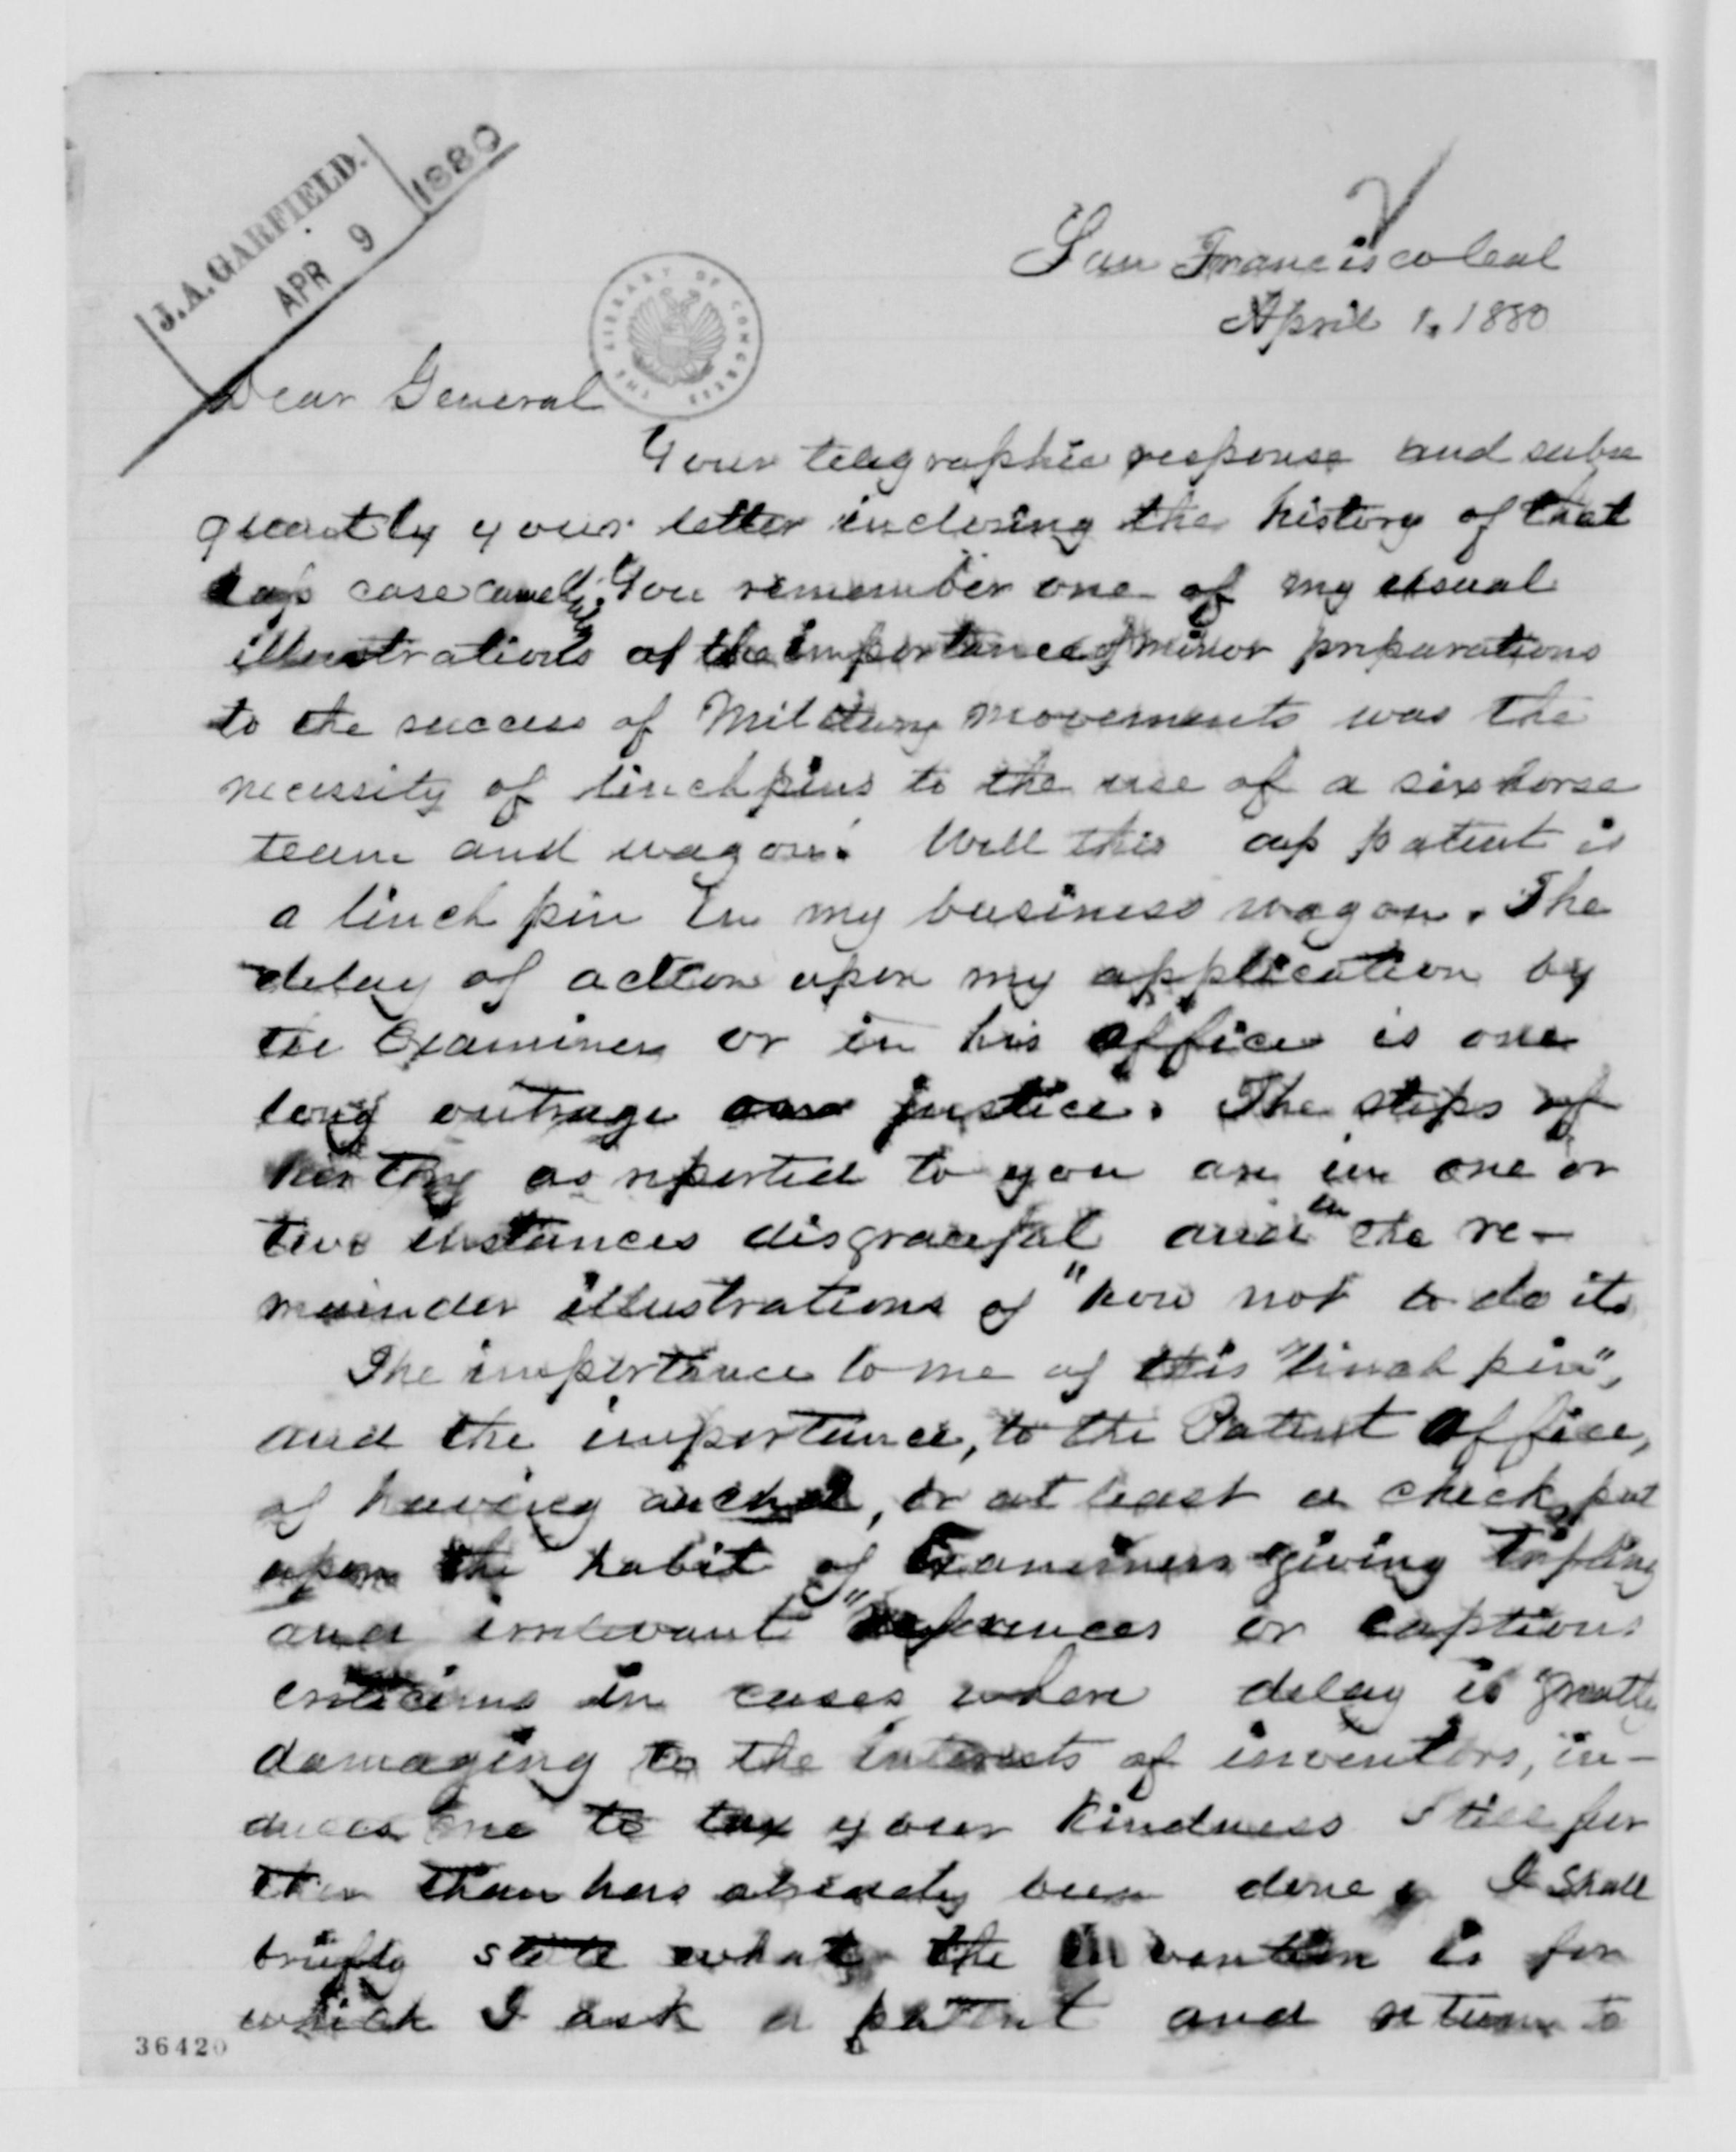 J.A. GARFIELD.
APR 9 1880
THE LIBRARY OF CONGRESS
San Francisco Cal
April 1, 1880
Dear General
Your telegraphic response and subse
quently your letter inclosing the history of that
case came. You remember one of my usual
illustrations of the importance of minor preparations
to the success of Military movements was the
necessity of linchpins to the use of a six horse
team and wagon. Well this cap patent is
a linch pin in my business wagon. The
delay of action upon my application by
the Examiner or in his office is one
long outrage on justice. The steps of
history as reported to you are in one or
two instances disgraceful and in the re-
mainder illustrations of "how not to do it.
The importance to me of this "linch pin",
and the importance, to the Patent Office,
of having an end, or at least a check, put
upon the habit of Examiners giving trifling
and irrelevant "references or captious
criticisms in cases where delay is greatly
damaging to the interests of inventors, in-
duces me to tax your kindness still fur
ther than has already been done. I shall
briefly state what the invention is for
which I ask a patent and return to
36420